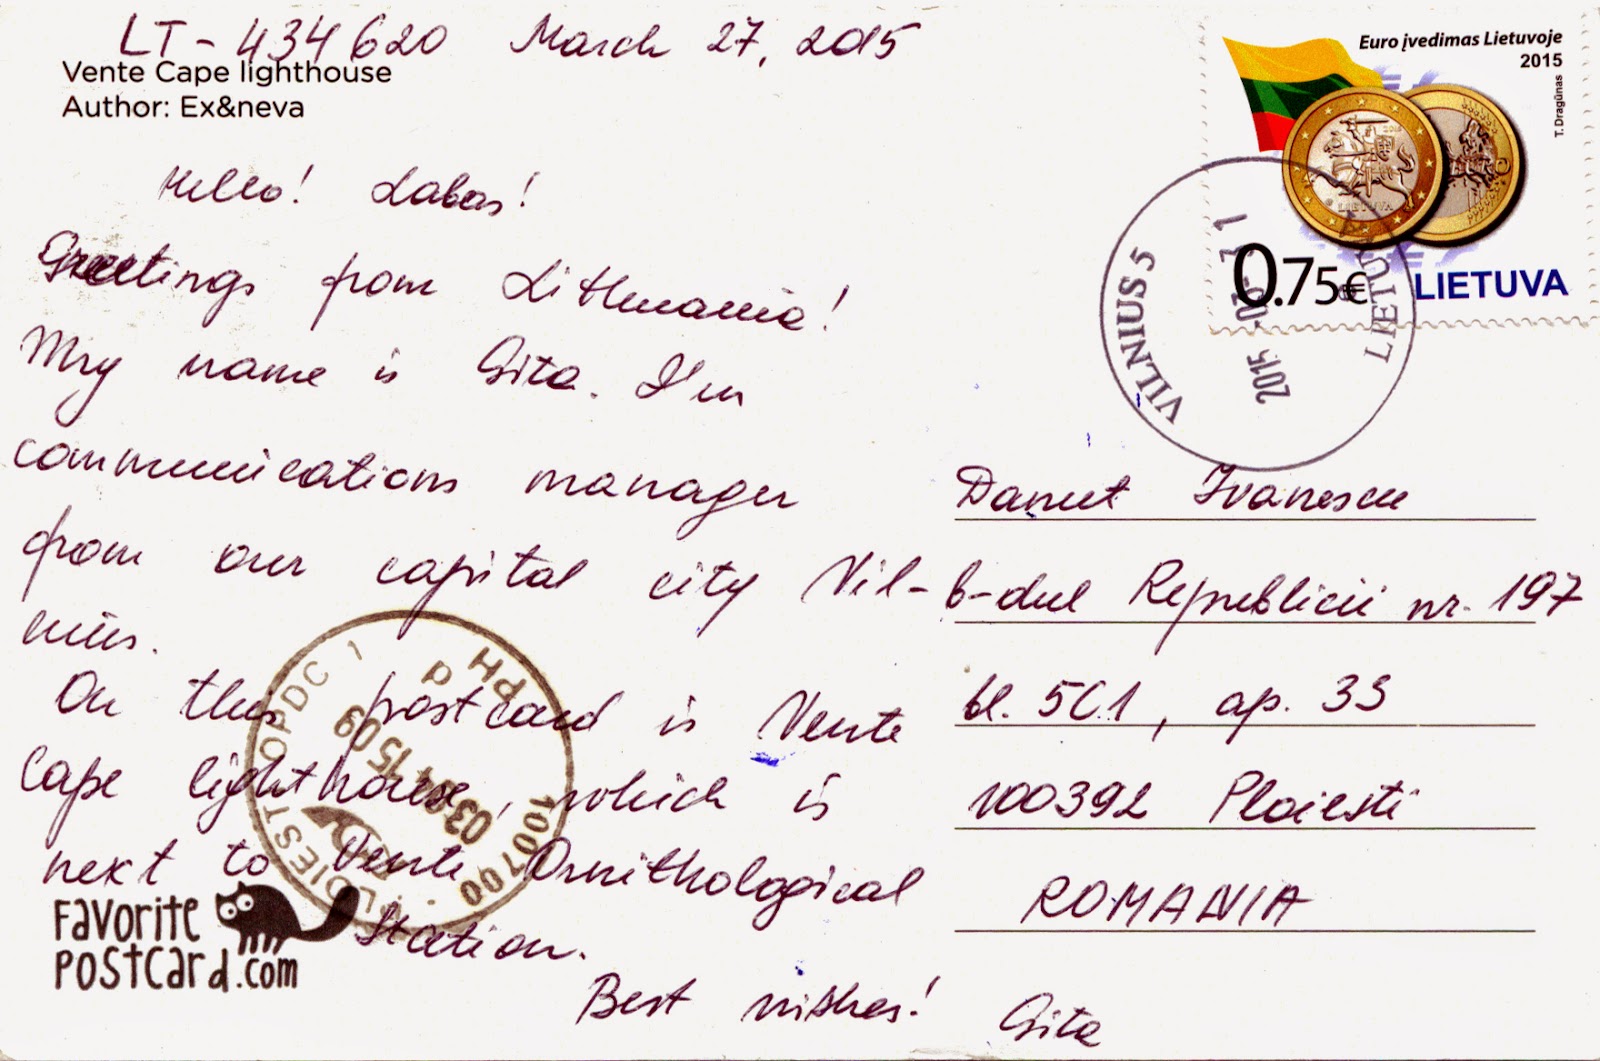 LT-434620 March 27, 2015
Vente Cape lighthouse
Author: Ex&neva
Hello! Labas!
Greetings from Lithuania!
My name is Gita. I'm
communications manager
from our capital city Vil-
nius.
On this postcard is Vente
Cape lighthouse, which is
next to Vente Ornithological
Station.
Best wishes! Gita
FAVORITE
POSTCARD.com
Euro įvedimas Lietuvoje
2015
T. Dragūnas
LIETUVA
0.75€ LIETUVA
VILNIUS 5
LIETUVA
2015
Danut Ivanescu
b-dul Republicii nr. 197
bl. 5C1, ap. 33
100392 Ploiesti
ROMANIA
PLOIESTI OPDC 1
PH
d
03.04.15 09
100700